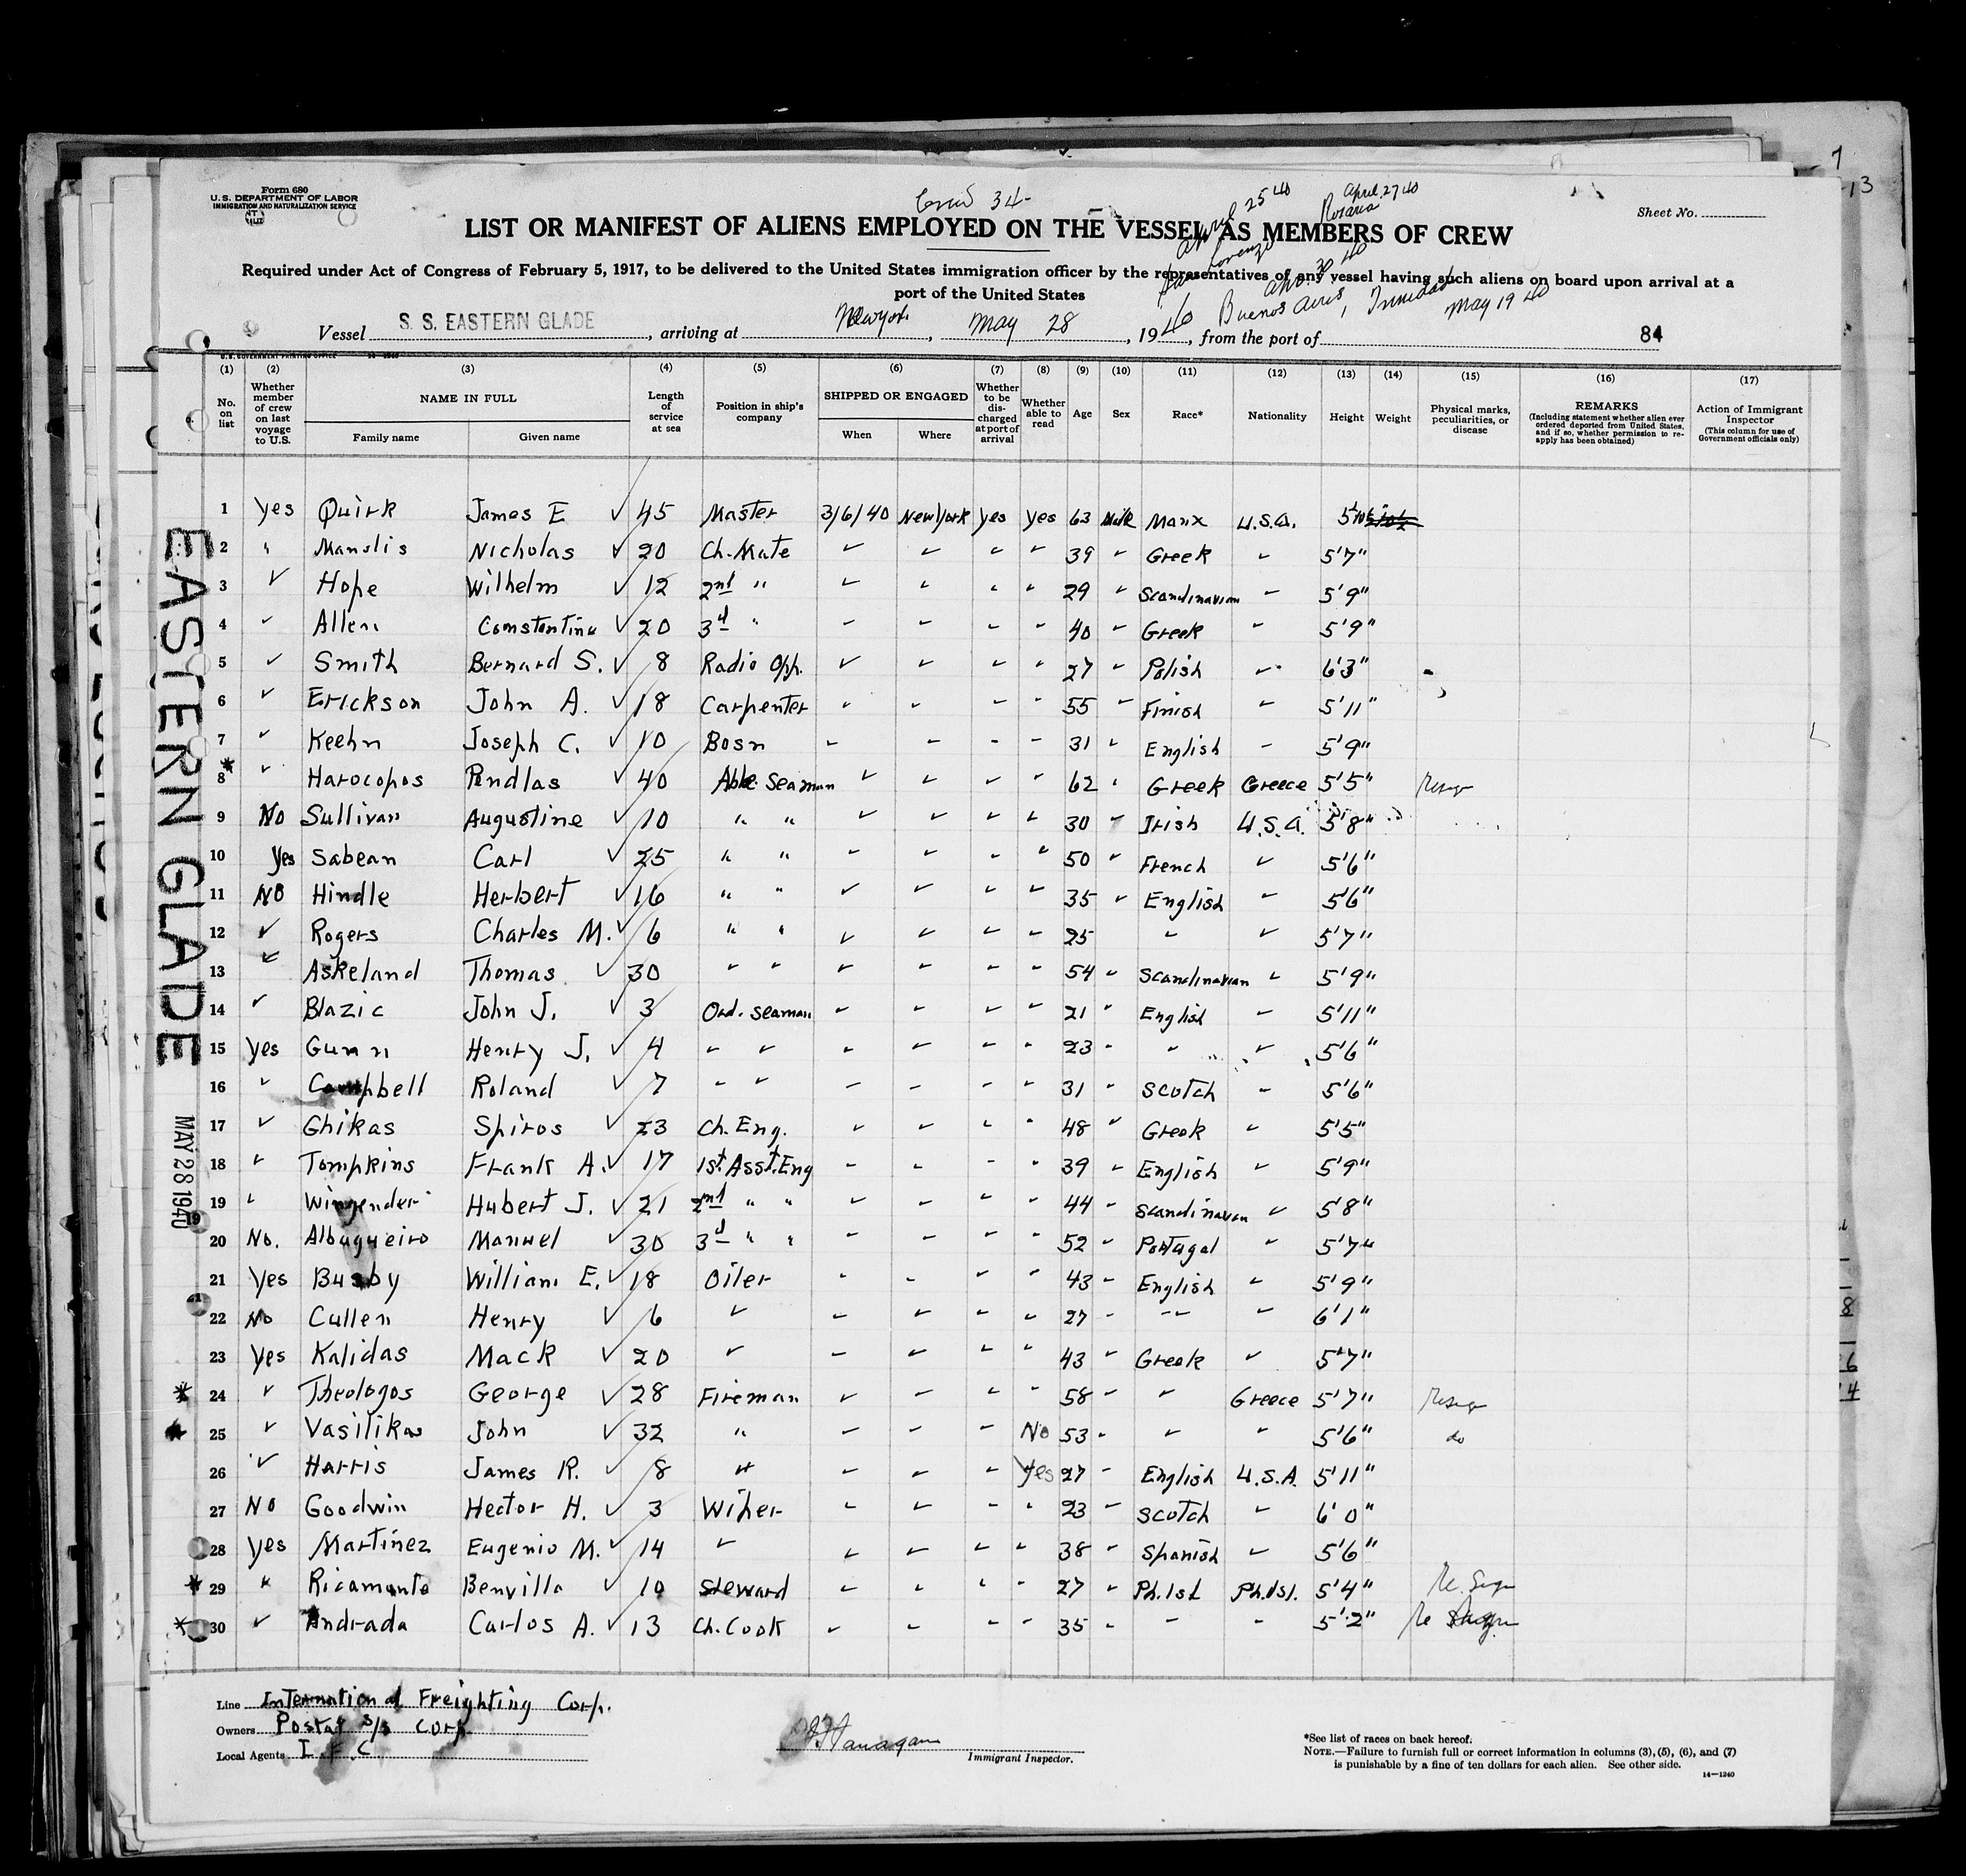 7
13
Form 680
U.S. DEPARTMENT OF LABOR
IMMIGRATION AND NATURALIZATION SERVICE
Crew 34-
April 25 40
April 27 40
Rosario
Sheet No.
LIST OR MANIFEST OF ALIENS EMPLOYED ON THE VESSEL AS MEMBERS OF CREW
San Lorenzo
Required under Act of Congress of February 5, 1917, to be delivered to the United States immigration officer by the representatives of any vessel having such aliens on board upon arrival at a
port of the United States
Apr. 30 40
Buenos Aires, Trinidad May 19 40
Vessel S. S. EASTERN GLADE, arriving at New York, May 28, 1940, from the port of 84
(1) (2) (3) (4) (5) (6) (7) (8) (9) (10) (11) (12) (13) (14) (15) (16) (17)
No. on list
Whether member of crew on last voyage to U.S.
NAME IN FULL
Family name
Given name
Length of service at sea
Position in ship's company
SHIPPED OR ENGAGED
When
Where
Whether to be discharged at port of arrival
Whether able to read
Age
Sex
Race*
Nationality
Height
Weight
Physical marks, peculiarities, or disease
REMARKS
(Including statement whether alien ever ordered deported from United States, and if so, whether permission to reapply has been obtained)
Action of Immigrant Inspector
(This column for use of Government officials only)
EASTERN GLADE
MAY 28 1940
1 yes Quirk James E ✓ 45 Master 3/6/40 New York yes yes 63 Male Manx U.S.A.
2 " Manslis Nicholas ✓ 20 Ch. Mate ✓ ✓ ✓ ✓ 39 ✓ Greek ✓ 5'7"
3 ✓ Hope Wilhelm ✓ 12 2nd " ✓ ✓ ✓ ✓ 29 ✓ Scandinavian ✓ 5'9"
4 ✓ Allen Constantine ✓ 20 3d " ✓ ✓ ✓ ✓ 40 ✓ Greek ✓ 5'9"
5 ✓ Smith Bernard S. ✓ 8 Radio Opp. ✓ ✓ ✓ ✓ 27 ✓ Polish ✓ 6'3"
6 ✓ Erickson John A. ✓ 18 Carpenter ✓ ✓ ✓ ✓ 55 ✓ Finish ✓ 5'11"
7 ✓ Keehn Joseph C. ✓ 10 Bosn ✓ ✓ ✓ ✓ 31 ✓ English ✓ 5'9"
*8 ✓ Harocopos Pendlas ✓ 40 Able Seaman ✓ ✓ ✓ ✓ 62 ✓ Greek Greece 5'5"
9 No Sullivan Augustine ✓ 10 " " ✓ ✓ ✓ ✓ 30 ✓ Irish U.S.A. 5'8"
10 yes Sabean Carl ✓ 25 " " ✓ ✓ ✓ ✓ 50 ✓ French ✓ 5'6"
11 No Hindle Herbert ✓ 16 " " ✓ ✓ ✓ ✓ 35 ✓ English ✓ 5'6"
12 ✓ Rogers Charles M. ✓ 6 " " ✓ ✓ ✓ ✓ 25 ✓ ✓ 5'7"
13 ✓ Askeland Thomas ✓ 30 ✓ ✓ ✓ ✓ ✓ ✓ 54 ✓ Scandinavian ✓ 5'9"
14 ✓ Blazic John J. ✓ 3 Ord. Seaman ✓ ✓ ✓ ✓ 21 ✓ English ✓ 5'11"
15 yes Gunn Henry J. ✓ 4 ✓ ✓ ✓ ✓ ✓ ✓ 23 ✓ ✓ ✓ 5'6"
16 ✓ Campbell Roland ✓ 7 ✓ ✓ ✓ ✓ ✓ ✓ 31 ✓ Scotch ✓ 5'6"
17 ✓ Ghikas Spiros ✓ 23 Ch. Eng. ✓ ✓ ✓ ✓ 48 ✓ Greek ✓ 5'5"
18 ✓ Tompkins Frank A. ✓ 17 1st Asst. Eng ✓ ✓ ✓ ✓ 39 ✓ English ✓ 5'9"
19 ✓ Wingender Hubert J. ✓ 21 2nd " " ✓ ✓ ✓ ✓ 44 ✓ Scandinavian ✓ 5'8"
20 No. Albuqueiro Manuel ✓ 30 3d " " ✓ ✓ ✓ ✓ 52 ✓ Portugal ✓ 5'7"
21 yes Busby William E. ✓ 18 Oiler ✓ ✓ ✓ ✓ 43 ✓ English ✓ 5'9"
22 No Cullen Henry ✓ 6 ✓ ✓ ✓ ✓ ✓ 27 ✓ ✓ ✓ 6'1"
23 yes Kalidas Mack ✓ 20 ✓ ✓ ✓ ✓ ✓ 43 ✓ Greek ✓ 5'7"
*24 ✓ Theologos George ✓ 28 Fireman ✓ ✓ ✓ ✓ 58 ✓ ✓ Greece 5'7"
*25 ✓ Vasilikas John ✓ 32 " ✓ ✓ ✓ No 53 ✓ ✓ ✓ 5'6" do
26 ✓ Harris James R. ✓ 8 " ✓ ✓ ✓ yes 27 ✓ English U.S.A. 5'11"
27 No Goodwin Hector H. ✓ 3 Wiper ✓ ✓ ✓ ✓ 23 ✓ Scotch ✓ 6'0"
28 yes Martinez Eugenio M. ✓ 14 ✓ ✓ ✓ ✓ ✓ 38 ✓ Spanish ✓ 5'6"
*29 " Ricamonte Benvillo ✓ 10 Steward ✓ ✓ ✓ ✓ 27 ✓ Ph.Isl Ph.Isl. 5'4"
*30 ✓ Andrada Carlos A. ✓ 13 Ch. Cook ✓ ✓ ✓ ✓ 35 ✓ ✓ ✓ 5'2"
Line International Freighting Corp.
Owners Postal S/S Corp.
Local Agents I.F.C.
Immigrant Inspector.
*See list of races on back hereof.
NOTE.—Failure to furnish full or correct information in columns (3), (5), (6), and (7)
is punishable by a fine of ten dollars for each alien. See other side.
14—1240